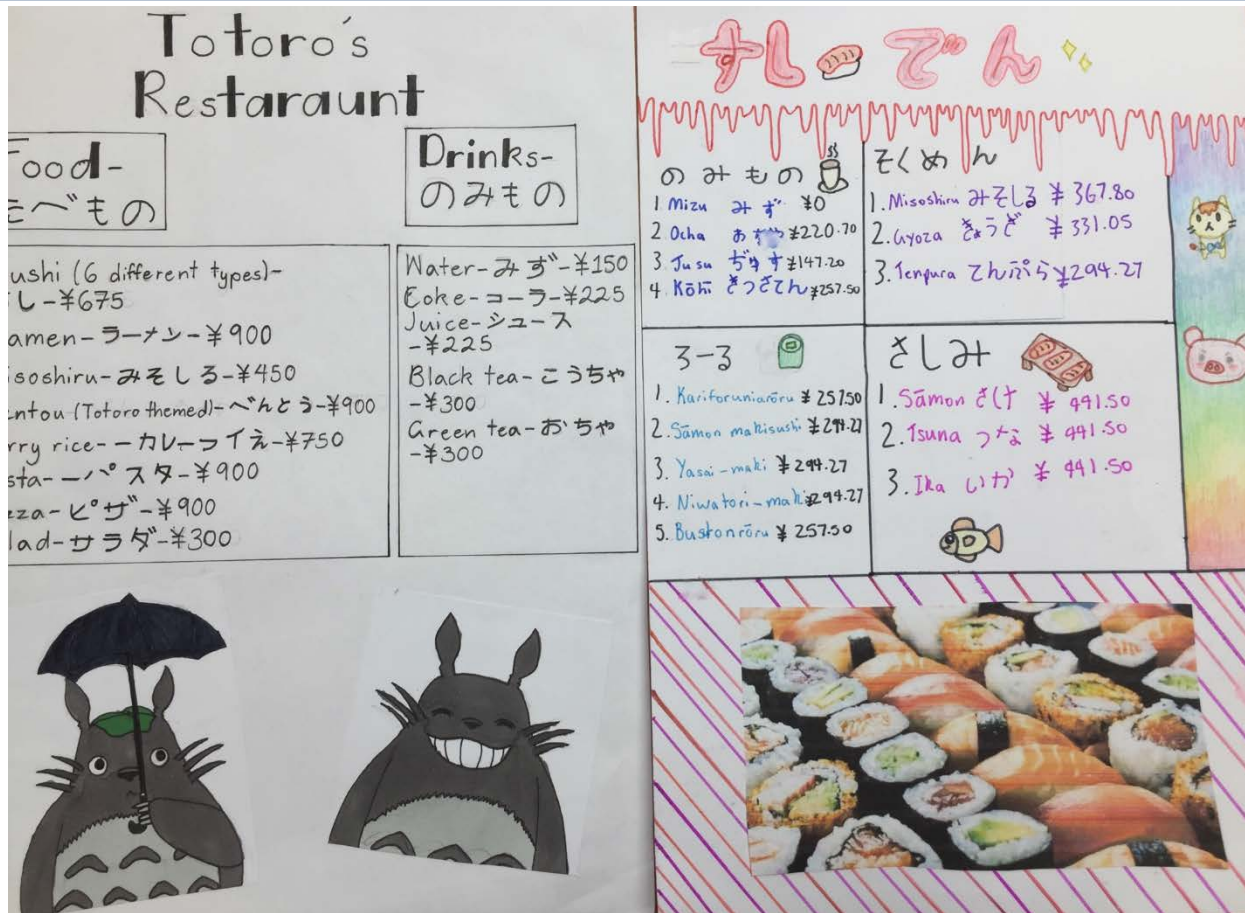 Totoro's
Restaraunt
Food-
たべもの
ushi (6 different types)-
し-¥675
amen-ラーメン-¥900
isoshiru-みそしる-¥450
entou (Totoro themed)-べんとう-¥900
rry rice-ーカレーライえ-¥750
sta-ーパスタ-¥900
zza-ピザ-¥900
lad-サラダ-¥300
Drinks-
のみもの
Water-みず-¥150
Coke-コーラ-¥225
Juice-シュース
-¥225
Black tea-こうちゃ
-¥300
Green tea-おちゃ
-¥300
すしでん
のみもの
1 Mizu みず ¥0
2 Ocha おちゃ ¥220.70
3 Jusu ぢゅす ¥147.20
4 Kōhī きっさてん ¥257.50
そくめん
1. Misoshiru みそしる ¥367.80
2. Gyoza ぎょうざ ¥331.05
3. Tenpura てんぷら ¥294.27
ろーる
1. Kariforuniarōru ¥257.50
2. Sāmon makisushi ¥294.27
3. Yasai-maki ¥294.27
4. Niwatori-maki ¥294.27
5. Bustonrōru ¥257.50
さしみ
1. Sāmon さけ ¥441.50
2. Tsuna つな ¥441.50
3. Ika いか ¥441.50